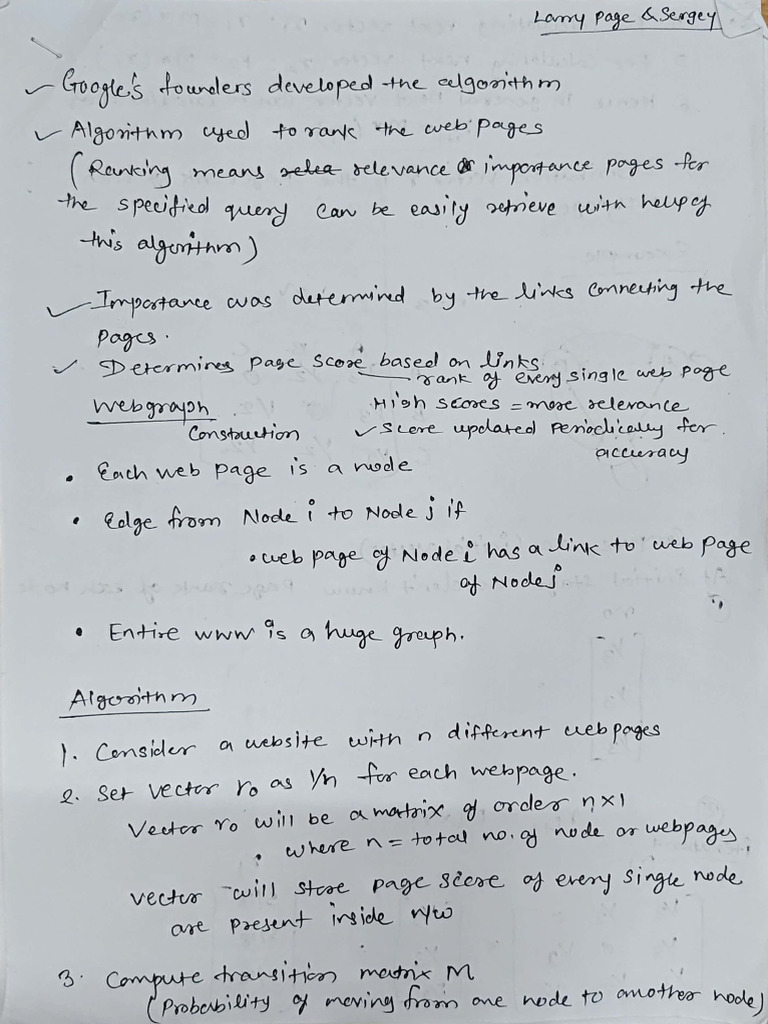 Larry Page & Sergey
Google's founders developed the algorithm
Algorithm used to rank the web pages
(Ranking means relevance or importance pages for
the specified query can be easily retrieve with help of
this algorithm)
Importance was determined by the links connecting the
pages.
Determines page score based on links.
rank of every single web page
Webgraph
High scores = more relevance
Construction
score updated periodically for
accuracy
• Each web page is a node
• Edge from Node i to Node j if
• web page of Node i has a link to web page
of Node j.
• Entire www is a huge graph.
Algorithm
1. Consider a website with n different webpages
2. Set vector r0 as 1/n for each webpage.
Vector r0 will be a matrix of order n×1
• where n = total no. of node or webpages.
vector will store page score of every single node
are present inside n/w
3. Compute transition matrix M
(Probability of moving from one node to another node)